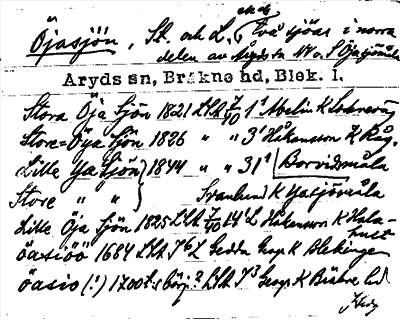 Öjasjön, St. och L. Två sjöar i norra
delen av Aryds sn NV o. S Öjasjömåla
Aryds sn, Bräkne hd, Blek. l.
Stora Öja Sjön 1821 LSA 7/40 1¹ Abelin K
Store=Öya Sjön 1826 " " 3¹ Håkansson K
Lille Ya Sjön } 1844 " " 31¹ Borvidmåla
Store " " } Svanlund K Yasjömåla
Lille Öja Sjön 1825 LSA 7/40 14¹ L Håkansson K Hala-
öasiöö 1684 LSA Gedda Geogr. K Blekingen
öasio (!) 1700t:s börj.? LSA Geogr K Bräkne hd